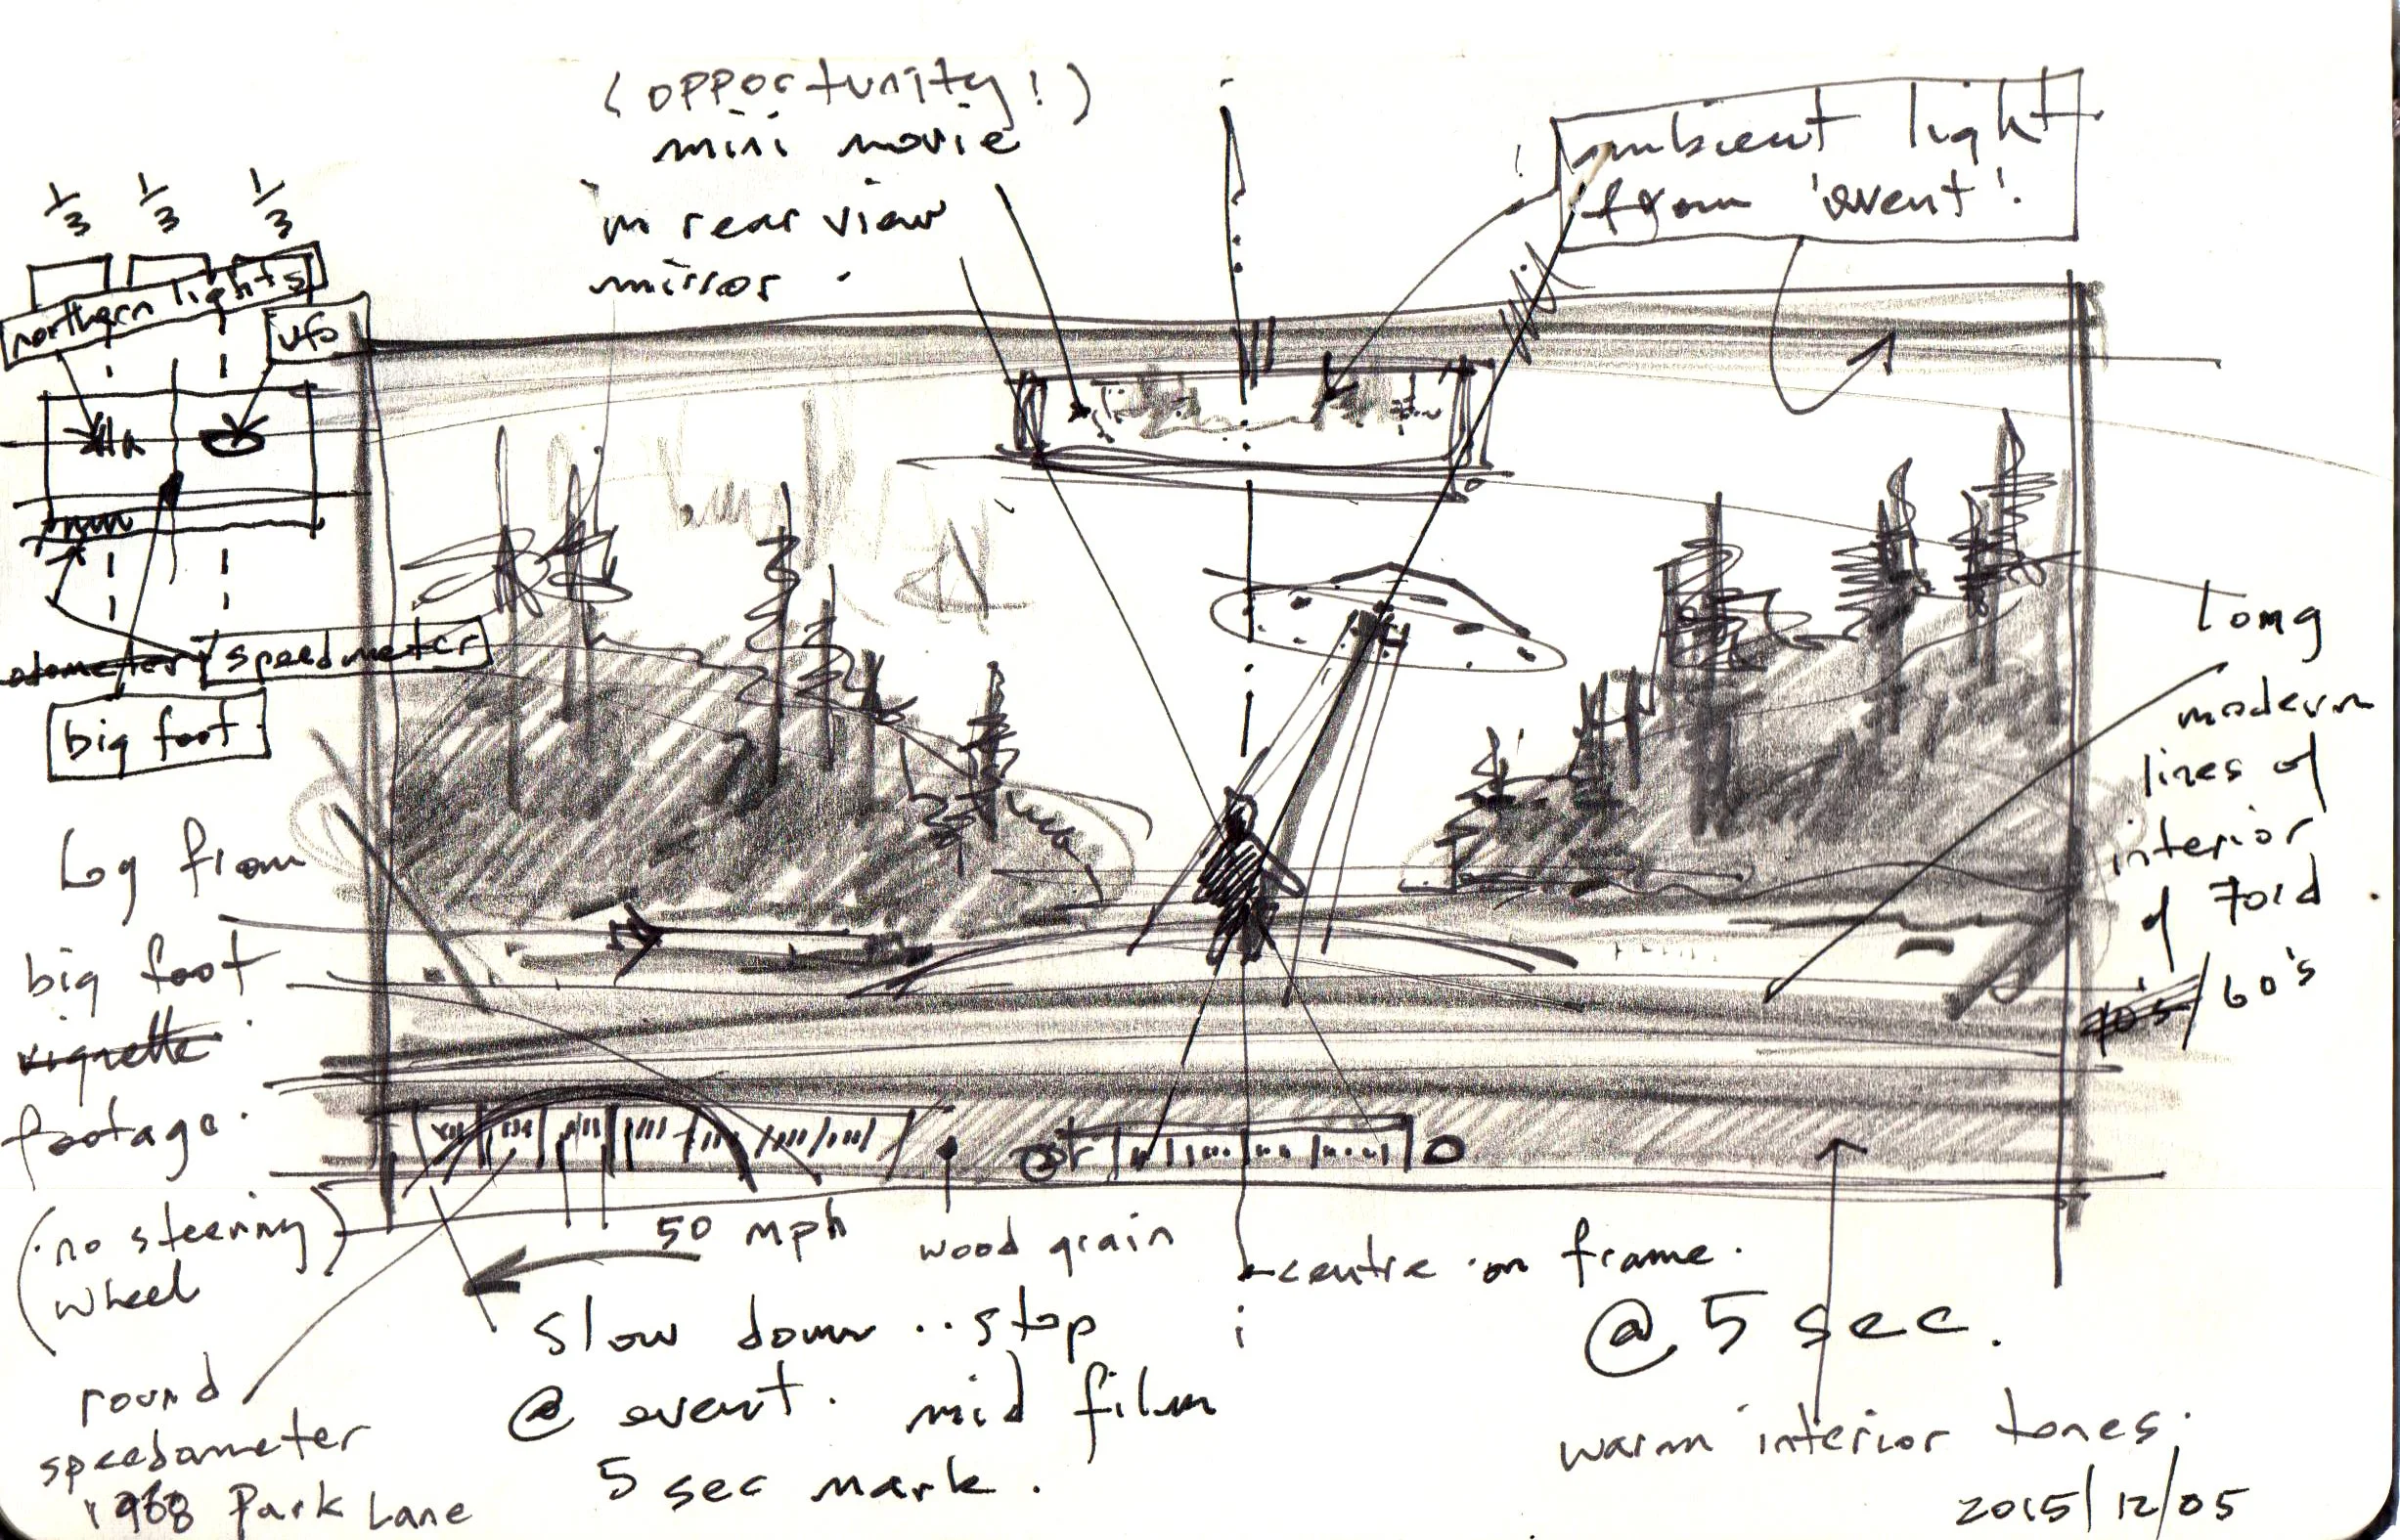 (opportunity!)
mini movie
in rear view
mirror.
ambient light
from 'event'.
1/3 1/3 1/3
northern lights
ufo
odometer speedmeter
big foot
Log from
big foot
vignette
footage.
(no steering
wheel)
round
speedometer
1968 Park Lane
50 mph
slow down .. stop
@ event. mid film
5 sec mark.
wood grain
centre on frame.
@ 5 sec.
warm interior tones.
2015/12/05
long
modern
lines of
interior
of Ford
70's/60's